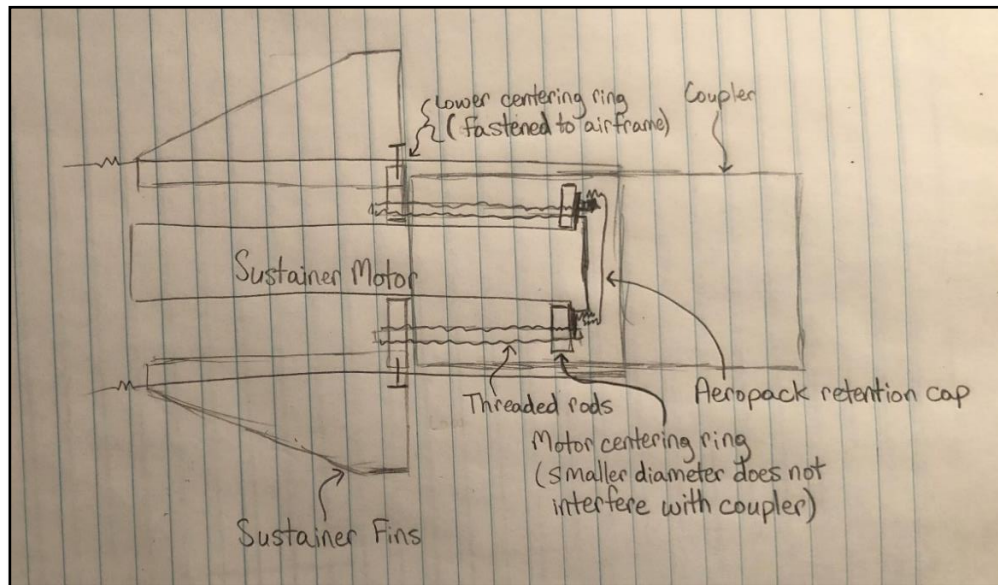 Lower centering ring
(fastened to airframe)
Coupler
Sustainer Motor
Threaded rods
Aeropack retention cap
Motor centering ring
(smaller diameter does not
interfere with coupler)
Sustainer Fins